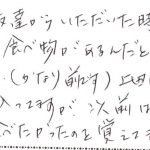 友達からいただいた時
食べ物があるんだと
(かなり前です)上田
入ってますが、以前は
べたかったのと覚えてき